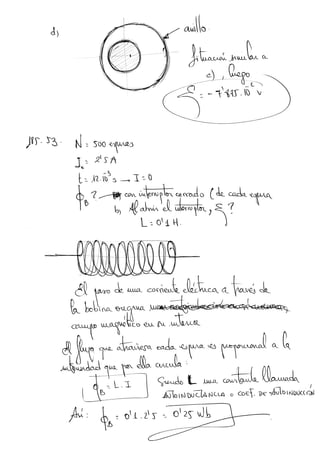 d)
anillo
Situación similar a
c), luego
ε = - 7'875.10⁻⁵ V
N = 500 espiras
I₀ = 2'5 A
t = 12.10⁻³ s → I = 0
ϕB ? con interruptor cerrado (de cada espira
b) Al abrir el interruptor, ε ?
L = 0'1 H.
El paso de una corriente eléctrica a través de
la bobina origina un
campo magnético en su interior
El flujo que atraviesa cada espira es proporcional a la
intensidad que por ella circula:
ϕB = L . I Siendo L una constante llamada
AUTOINDUCTANCIA o COEF. DE AUTOINDUCCIÓN
Así: ϕB = 0'1.2'5 = 0'25 Wb